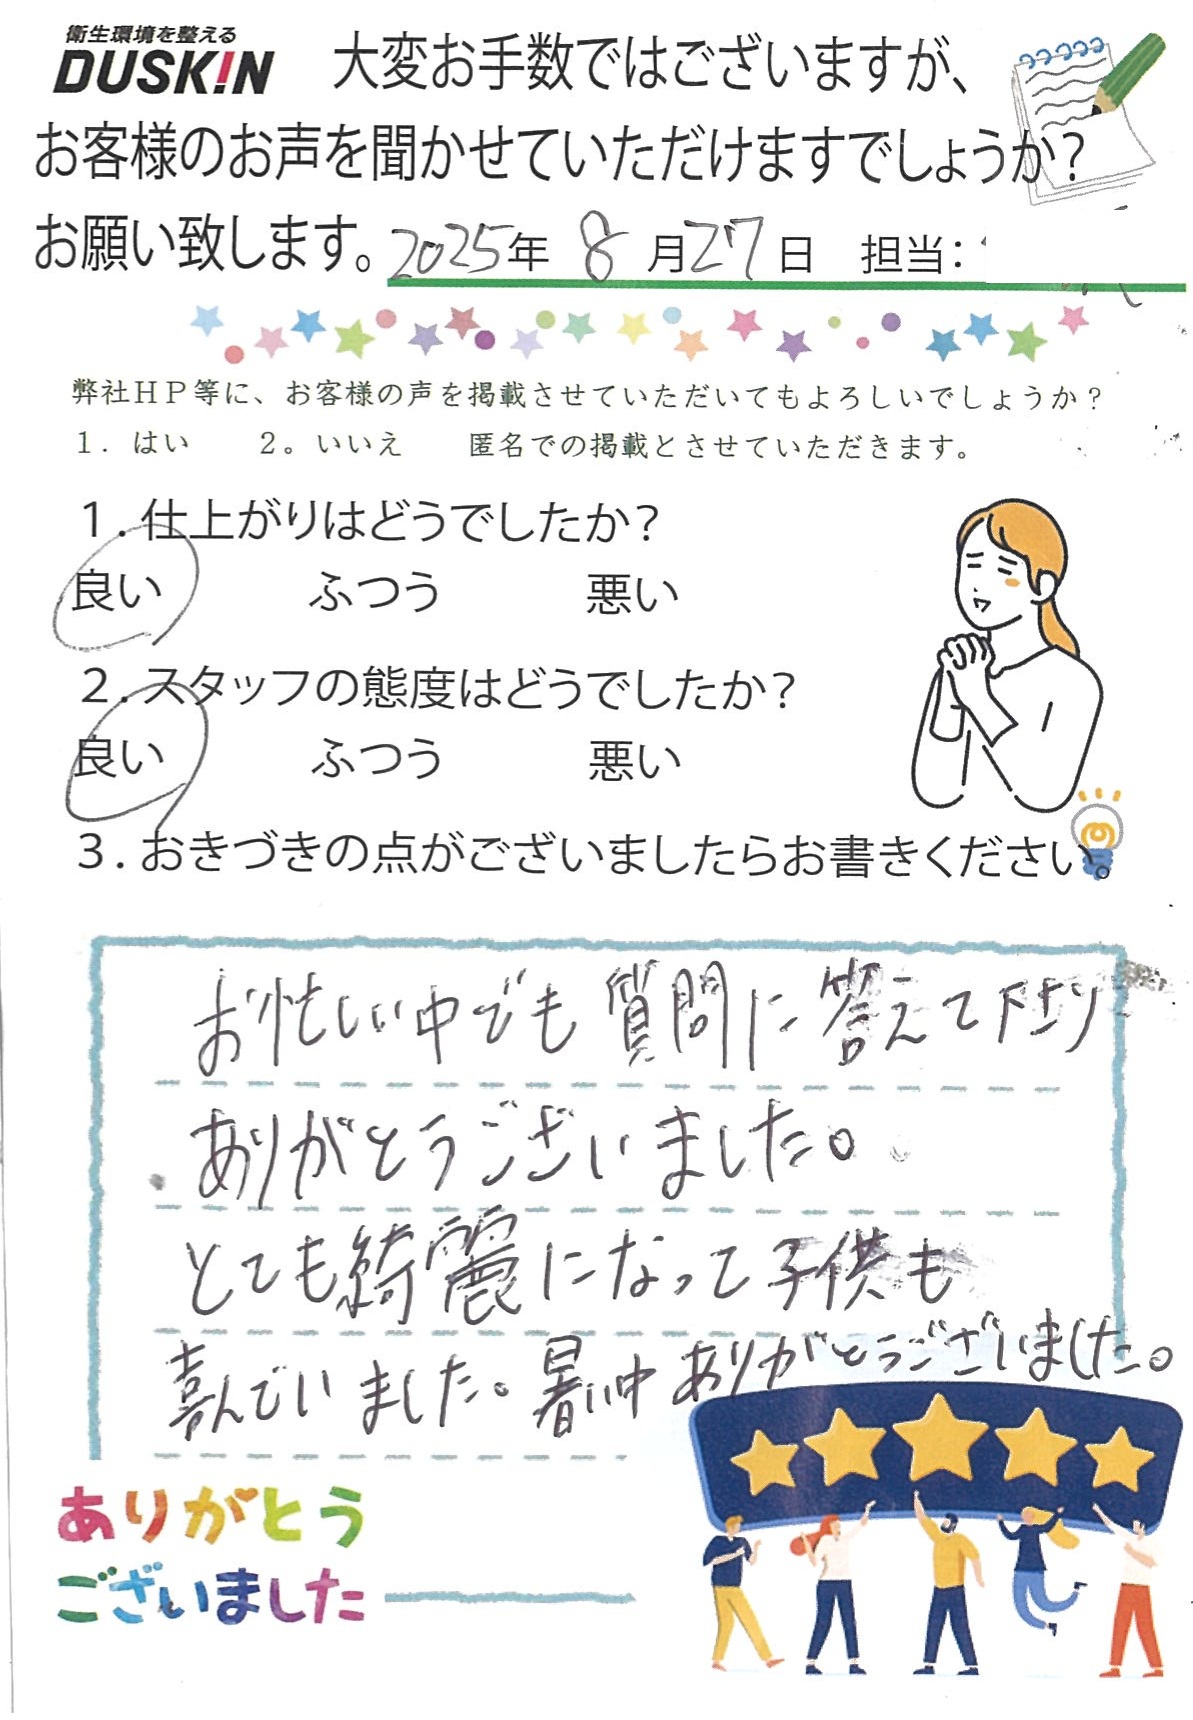 衛生環境を整える
DUSK!N
大変お手数ではございますが、
お客様のお声を聞かせていただけますでしょうか?
お願い致します。2025年 8月27日 担当:
弊社HP等に、お客様の声を掲載させていただいてもよろしいでしょうか?
1. はい 2。いいえ 匿名での掲載とさせていただきます。
1.仕上がりはどうでしたか?
良い ふつう 悪い
2.スタッフの態度はどうでしたか?
良い ふつう 悪い
3.おきづきの点がございましたらお書きください。
お忙しい中でも質問に答えて下さり
ありがとうございました。
とても綺麗になって子供も
喜んでいました。暑い中ありがとうございました。
ありがとう
ございました